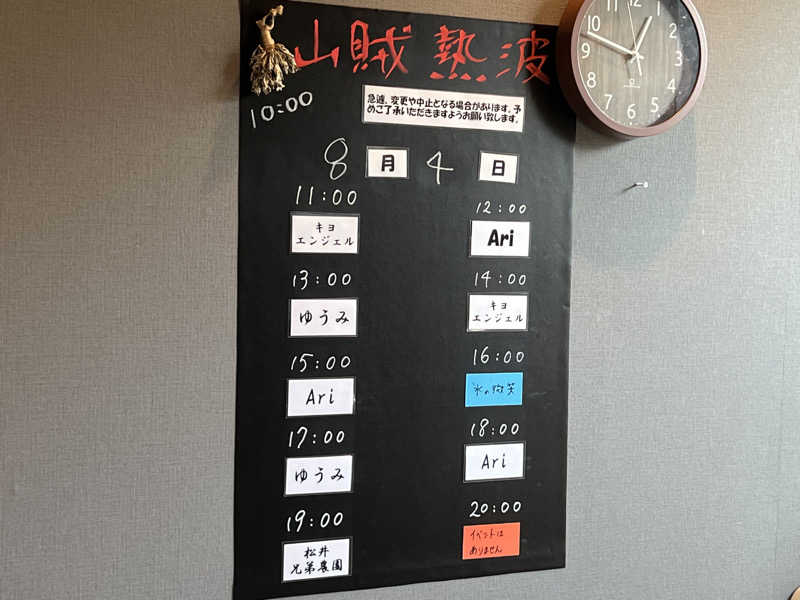 山賊熱波
10:00
急遽、変更や中止となる場合があります。予
めご了承いただきますようお願い致します。
8月4日
11:00
キヨ
エンジェル
12:00
Ari
13:00
ゆうみ
14:00
キヨ
エンジェル
15:00
Ari
16:00
氷の微笑
17:00
ゆうみ
18:00
Ari
19:00
松井
兄弟農園
20:00
イベントは
ありません
11 12 1 2 3 4 5 6 7 8 9 10